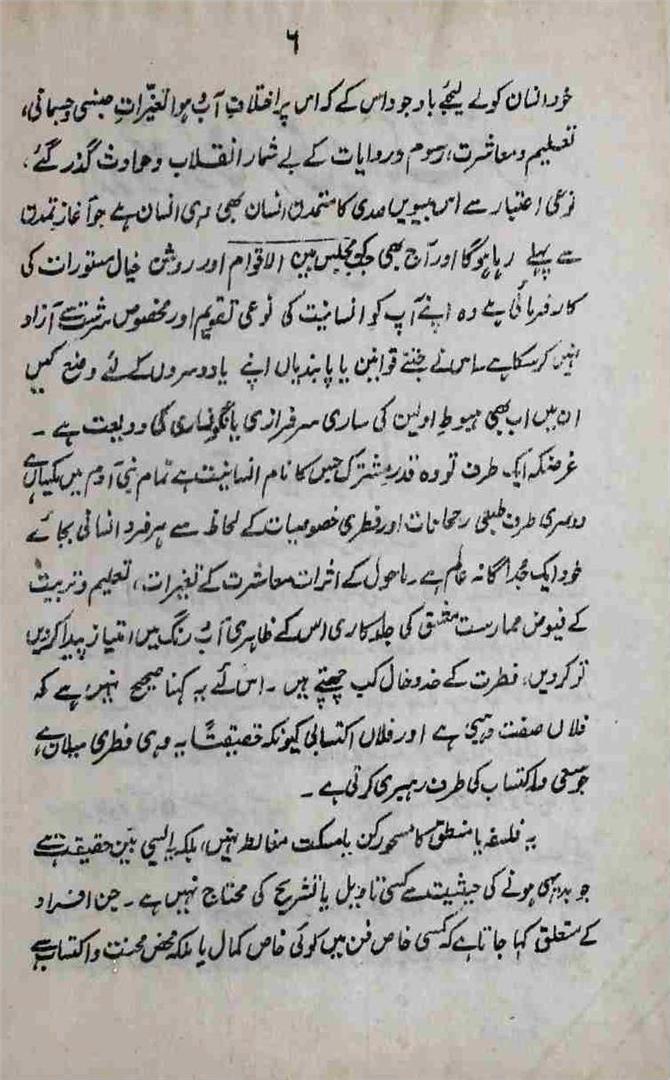 ۶
خود انسان کو لے لیجئے باوجود اس کے کہ اس پر اختلافِ آب و ہوا تغیّراتِ جنسی و جسمانی،
تعلیم و معاشرت، رسوم و روایات کے بے شمار انقلاب و حوادث گذر گئے،
نوعی اعتبار سے اس بیسویں صدی کا متمدن انسان بھی وہی انسان ہے جو آغازِ تمدن
سے پہلے رہا ہوگا اور آج بھی جبکہ مجلس بین الاقوام اور روشن خیال مستورات کی
کارفرمائی ہے وہ اپنے آپ کو انسانیت کی نوعی تقویم اور مخصوص سرشت سے آزاد
نہیں کر سکا ہے اس نے جتنے قوانین یا پابندیاں اپنے یا دوسروں کے لئے وضع کیں
ان میں اب بھی ہبوطِ اولین کی ساری سرفرازی یا نگونساری کی ودیعت ہے ۔
غرضکہ ایک طرف تو وہ قدرِ مشترک جس کا نام انسانیت ہے تمام بنی آدم میں یکساں ہے
دوسری طرف طبعی رجحانات اور فطری خصوصیات کے لحاظ سے ہر فرد انسانی بجائے
خود ایک جُداگانہ عالم ہے ۔ ماحول کے اثرات معاشرت کے تغیرات، تعلیم و تربیت
کے فیوض ممارست مشق کی جلد کاری اس کے ظاہری آب و رنگ میں امتیاز پیدا کر دیں
تو کر دیں، فطرت کے خد و خال کب چھپتے ہیں ۔ اس لئے یہ کہنا صحیح نہیں ہے کہ
فلاں صفت وہبی ہے اور فلاں اکتسابی کیونکہ حقیقتًا یہ وہی فطری میلان ہے،
جو سعی و اکتساب کی طرف رہبری کرتی ہے ۔
یہ فلسفہ یا منطق کا مسحور کن یا مسکت مغالطہ نہیں، بلکہ ایسی بیّن حقیقت ہے
جو بدیہی ہونے کی حیثیت سے کسی تاویل یا تشریح کی محتاج نہیں ہے ۔ جن افراد
کے متعلق کہا جاتا ہے کہ کسی خاص فن میں کوئی خاص کمال یا ملکہ محض محنت و اکتساب سے